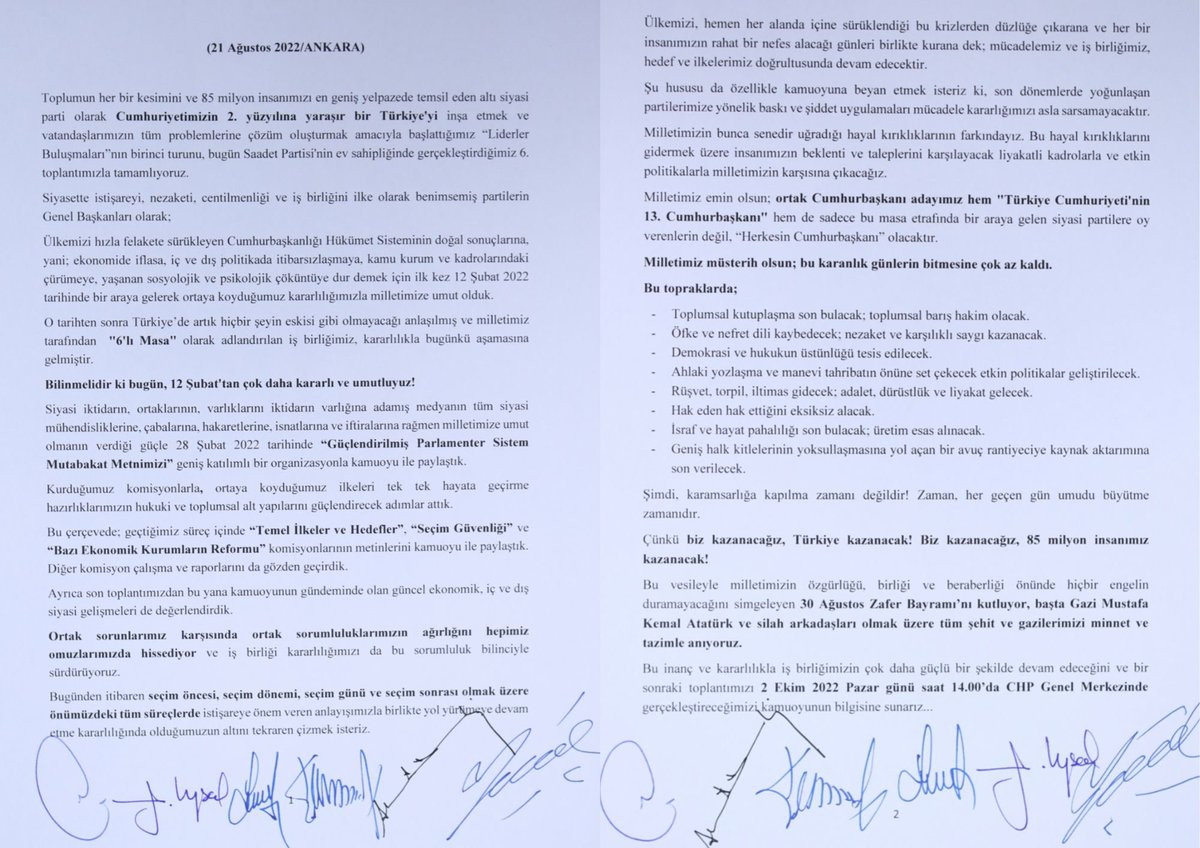 (21 Ağustos 2022/ANKARA)
Toplumun her bir kesimini ve 85 milyon insanımızı en geniş yelpazede temsil eden altı siyasi
parti olarak Cumhuriyetimizin 2. yüzyılına yaraşır bir Türkiye'yi inşa etmek ve
vatandaşlarımızın tüm problemlerine çözüm oluşturmak amacıyla başlattığımız “Liderler
Buluşmaları”nın birinci turunu, bugün Saadet Partisi'nin ev sahipliğinde gerçekleştirdiğimiz 6.
toplantımızla tamamlıyoruz.
Siyasette istişareyi, nezaketi, centilmenliği ve iş birliğini ilke olarak benimsemiş partilerin
Genel Başkanları olarak;
Ülkemizi hızla felakete sürükleyen Cumhurbaşkanlığı Hükümet Sisteminin doğal sonuçlarına,
yani; ekonomide iflasa, iç ve dış politikada itibarsızlaşmaya, kamu kurum ve kadrolarındaki
çürümeye, yaşanan sosyolojik ve psikolojik çöküntüye dur demek için ilk kez 12 Şubat 2022
tarihinde bir araya gelerek ortaya koyduğumuz kararlılığımızla milletimize umut olduk.
O tarihten sonra Türkiye’de artık hiçbir şeyin eskisi gibi olmayacağı anlaşılmış ve milletimiz
tarafından "6'lı Masa" olarak adlandırılan iş birliğimiz, kararlılıkla bugünkü aşamasına
gelmiştir.
Bilinmelidir ki bugün, 12 Şubat'tan çok daha kararlı ve umutluyuz!
Siyasi iktidarın, ortaklarının, varlıklarını iktidarın varlığına adamış medyanın tüm siyasi
mühendisliklerine, çabalarına, hakaretlerine, isnatlarına ve iftiralarına rağmen milletimize umut
olmanın verdiği güçle 28 Şubat 2022 tarihinde “Güçlendirilmiş Parlamenter Sistem
Mutabakat Metnimizi” geniş katılımlı bir organizasyonla kamuoyu ile paylaştık.
Kurduğumuz komisyonlarla, ortaya koyduğumuz ilkeleri tek tek hayata geçirme
hazırlıklarımızın hukuki ve toplumsal alt yapılarını güçlendirecek adımlar attık.
Bu çerçevede; geçtiğimiz süreç içinde “Temel İlkeler ve Hedefler”, “Seçim Güvenliği” ve
“Bazı Ekonomik Kurumların Reformu” komisyonlarının metinlerini kamuoyu ile paylaştık.
Diğer komisyon çalışma ve raporlarını da gözden geçirdik.
Ayrıca son toplantımızdan bu yana kamuoyunun gündeminde olan güncel ekonomik, iç ve dış
siyasi gelişmeleri de değerlendirdik.
Ortak sorunlarımız karşısında ortak sorumluluklarımızın ağırlığını hepimiz
omuzlarımızda hissediyor ve iş birliği kararlılığımızı da bu sorumluluk bilinciyle
sürdürüyoruz.
Bugünden itibaren seçim öncesi, seçim dönemi, seçim günü ve seçim sonrası olmak üzere
önümüzdeki tüm süreçlerde istişareye önem veren anlayışımızla birlikte yol yürümeye devam
etme kararlılığında olduğumuzun altını tekraren çizmek isteriz.
1
Ülkemizi, hemen her alanda içine sürüklendiği bu krizlerden düzlüğe çıkarana ve her bir
insanımızın rahat bir nefes alacağı günleri birlikte kurana dek; mücadelemiz ve iş birliğimiz,
hedef ve ilkelerimiz doğrultusunda devam edecektir.
Şu hususu da özellikle kamuoyuna beyan etmek isteriz ki, son dönemlerde yoğunlaşan
partilerimize yönelik baskı ve şiddet uygulamaları mücadele kararlığımızı asla sarsamayacaktır.
Milletimizin bunca senedir uğradığı hayal kırıklıklarının farkındayız. Bu hayal kırıklıklarını
gidermek üzere insanımızın beklenti ve taleplerini karşılayacak liyakatli kadrolarla ve etkin
politikalarla milletimizin karşısına çıkacağız.
Milletimiz emin olsun; ortak Cumhurbaşkanı adayımız hem "Türkiye Cumhuriyeti'nin
13. Cumhurbaşkanı" hem de sadece bu masa etrafında bir araya gelen siyasi partilere oy
verenlerin değil, “Herkesin Cumhurbaşkanı” olacaktır.
Milletimiz müsterih olsun; bu karanlık günlerin bitmesine çok az kaldı.
Bu topraklarda;
- Toplumsal kutuplaşma son bulacak; toplumsal barış hakim olacak.
- Öfke ve nefret dili kaybedecek; nezaket ve karşılıklı saygı kazanacak.
- Demokrasi ve hukukun üstünlüğü tesis edilecek.
- Ahlaki yozlaşma ve manevi tahribatın önüne set çekecek etkin politikalar geliştirilecek.
- Rüşvet, torpil, iltimas gidecek; adalet, dürüstlük ve liyakat gelecek.
- Hak eden hak ettiğini eksiksiz alacak.
- İsraf ve hayat pahalılığı son bulacak; üretim esas alınacak.
- Geniş halk kitlelerinin yoksullaşmasına yol açan bir avuç rantiyeciye kaynak aktarımına
son verilecek.
Şimdi, karamsarlığa kapılma zamanı değildir! Zaman, her geçen gün umudu büyütme
zamanıdır.
Çünkü biz kazanacağız, Türkiye kazanacak! Biz kazanacağız, 85 milyon insanımız
kazanacak!
Bu vesileyle milletimizin özgürlüğü, birliği ve beraberliği önünde hiçbir engelin
duramayacağını simgeleyen 30 Ağustos Zafer Bayramı’nı kutluyor, başta Gazi Mustafa
Kemal Atatürk ve silah arkadaşları olmak üzere tüm şehit ve gazilerimizi minnet ve
tazimle anıyoruz.
Bu inanç ve kararlılıkla iş birliğimizin çok daha güçlü bir şekilde devam edeceğini ve bir
sonraki toplantımızı 2 Ekim 2022 Pazar günü saat 14.00’da CHP Genel Merkezinde
gerçekleştireceğimizi kamuoyunun bilgisine sunarız...
2